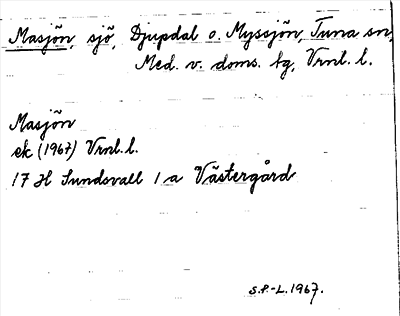 Masjön, sjö, Djupdal o. Myssjön, Tuna sn,
Med. v. doms. tg, Vrnl. l.
Masjön
ek (1967) Vrnl. l.
17 H Sundsvall 1 a Västergård
S.P.-L. 1967.